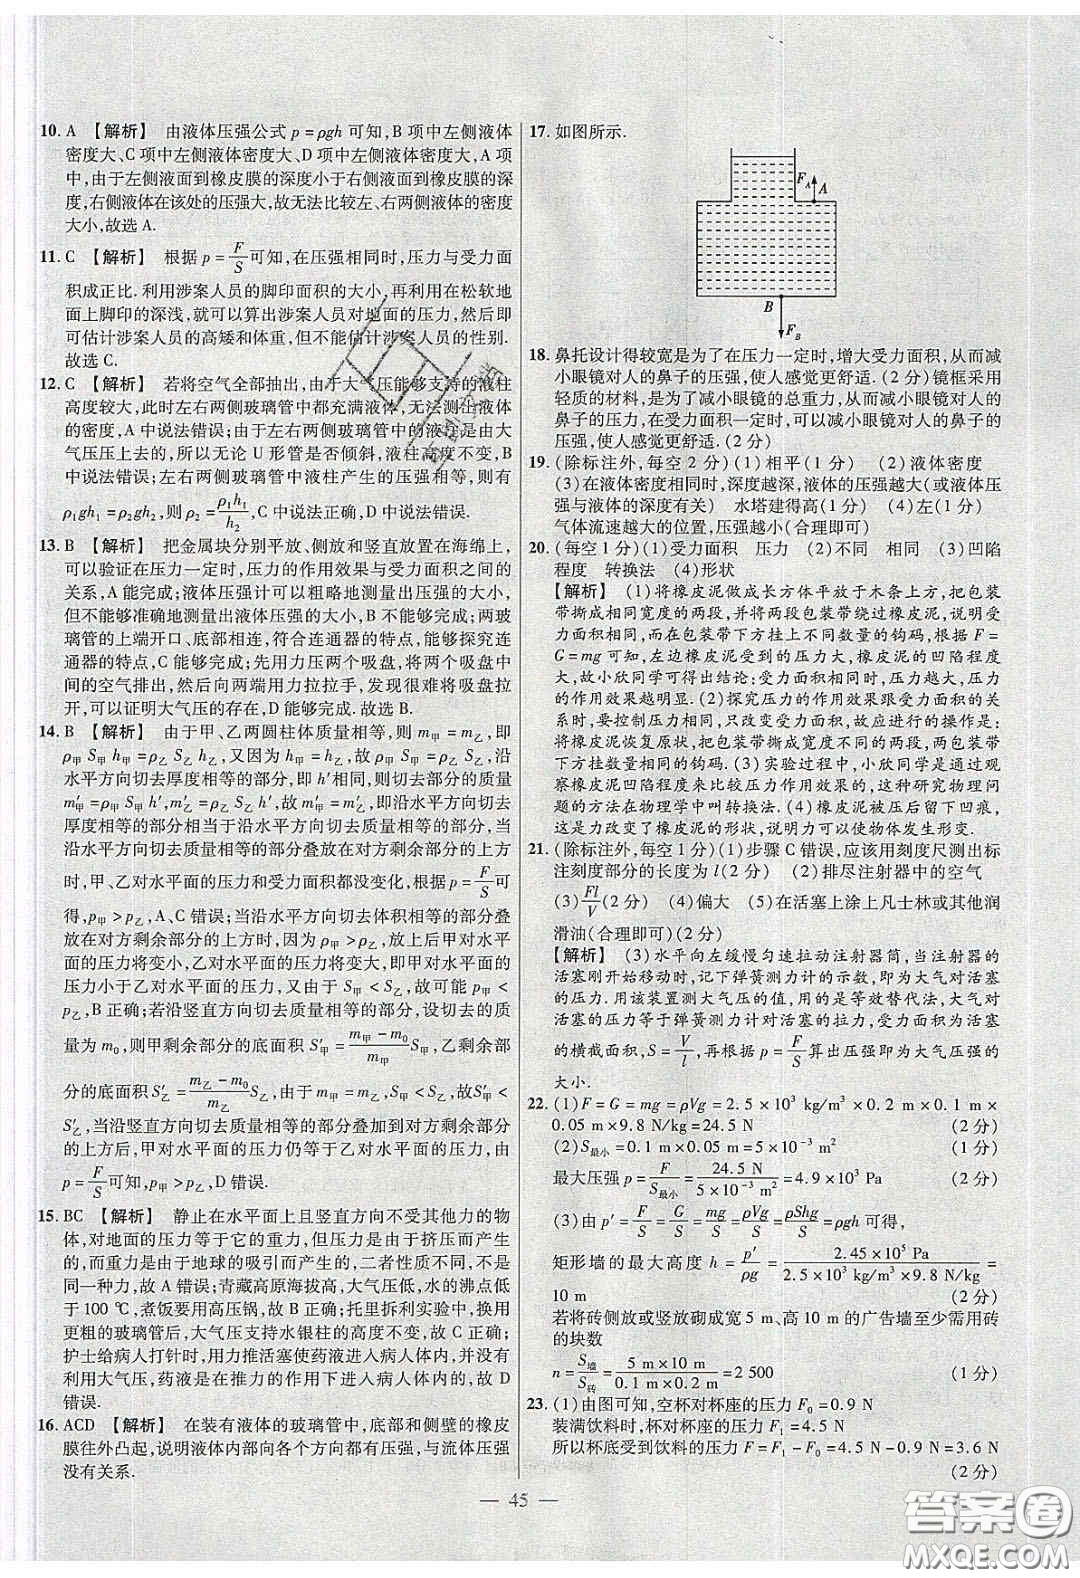 10. A 【解析】 由液体压强公式 p=ρgh 可知,B 项中左侧液体
密度大、C 项中左侧液体密度大、D 项中左侧液体密度大,A 项
中,由于左侧液面到橡皮膜的深度小于右侧液面到橡皮膜的深
度,右侧液体在该处的压强大,故无法比较左、右两侧液体密度
大小,故选 A.
11. C 【解析】 根据 p=F/S 可知,在压强相同时,压力与受力面
积成正比.利用涉案人员的脚印面积的大小,再利用在松软地
面上脚印的深浅,就可以算出涉案人员对地面的压力,然后即
可估计涉案人员的高矮和体重,但不能估计涉案人员的性别.
故选 C.
12. C 【解析】 若将空气全部抽出,由于大气压能够支持的液柱
高度较大,此时左右两侧玻璃管中都充满液体,无法测出液体
的密度,A 中说法错误;由于左右两侧玻璃管中的液柱是由大
气压压上去的,所以无论 U 形管是否倾斜,液柱高度不变,B
中说法错误;左右两侧玻璃管中液柱产生的压强相等,则有
ρ₁gh₁=ρ₂gh₂,则 ρ₂=ρ₁h₁/h₂,C 中说法正确,D 中说法错误.
13. B 【解析】 把金属块分别平放、侧放和竖直放置在海绵上,
可以验证在压力一定时,压力的作用效果与受力面积之间的
关系,A 能完成;液体压强计可以粗略地测量出压强的大小,
但不能够准确地测量出液体压强的大小,B 不能够完成;两玻
璃管的上端开口、底部相连,符合连通器的特点,能够探究连
通器的特点,C 能够完成;先用力压两个吸盘,将两个吸盘中
间的空气排出,然后向两端用力拉拉手,发现很难将吸盘拉
开,可以证明大气压的存在,D 能够完成.故选 B.
14. B 【解析】 由于甲、乙两圆柱体质量相等,则 m甲=m乙,即
ρ甲 S甲 h甲=ρ乙 S乙 h乙,又因为 h甲>h乙,故 ρ甲 S甲<ρ乙 S乙,沿
水平方向切去厚度相等的部分,即 h′相同,切去部分的质量
m′甲=ρ甲 S甲 h′,m′乙=ρ乙 S乙 h′,故 m′甲<m′乙,即沿水平方向切去
厚度相等的部分相当于沿水平方向切去质量相等的部分,当
沿水平方向切去质量相等的部分叠放在对方剩余部分的上方
时,甲、乙对水平面的压力和受力面积都没变化,根据 p=F/S 可
得,p甲>p乙,A、C 错误;当沿水平方向切去体积相等的部分叠
放在对方剩余部分的上方时,因为 ρ甲>ρ乙,所以甲对水平面
的压力将变小,乙对水平面的压力将变大,即甲对水平面的
压力小于乙对水平面的压力,又由于 S甲>S乙,故可能 p甲<
p乙,B 正确;若沿竖直方向切去质量相等的部分,设切去的质
量为 m₀,则甲剩余部分的底面积 S′甲=(m甲-m₀)/m甲 S甲,乙剩余部
分的底面积 S′乙=(m乙-m₀)/m乙 S乙,由于 m甲=m乙,S甲<S乙,故S′甲<
S′乙,当沿竖直方向切去质量相等的部分叠加到对方剩余部分
的上方后,甲对水平面的压力仍等于乙对水平面的压力,由
p=F/S可知,p甲>p乙,D 错误.
15. BC 【解析】 静止在水平面上且竖直方向不受其他力的物
体,对地面的压力等于它的重力,但压力是由于挤压而产生
的,而重力是由于地球的吸引而产生的,二者性质不同,不是
同一种力,故 A 错误;青藏高原海拔高,大气压低,水的沸点低
于 100 ℃,煮饭要用高压锅,故 B 正确;托里拆利实验中,换用
更粗的玻璃管后,大气压支持水银柱的高度不变,故 C 正确;
护士给病人打针时,用力推活塞使药液进入病人体内,并没有
利用大气压,药液是在推力的作用下进入病人体内的,故 D
错误.
16. ACD 【解析】 在装有液体的玻璃管中,底部和侧壁的橡皮
膜往外凸起,说明液体内部向各个方向都有压强,与流体压强
没有关系.
17. 如图所示.
F_A
A
B
F_B
18. 鼻托设计得较宽是为了在压力一定时,增大受力面积,从而减
小眼镜对人的鼻子的压强,使人感觉更舒适.(2 分)镜框采用
轻质的材料,是为了减小眼镜的总重力,从而减小眼镜对人的
鼻子的压力,在受力面积一定时,可以减小眼镜对人的鼻子的
压强,使人感觉更舒适.(2 分)
19. (除标注外,每空 2 分)(1)相平(1 分) (2)液体密度
(3)在液体密度相同时,深度越深,液体的压强越大(或液体压
强与液体的深度有关) 水塔建得高(1 分) (4)左(1 分)
气体流速越大的位置,压强越小(合理即可)
20. (每空 1 分)(1)受力面积 压力 (2)不同 相同 (3)凹陷
程度 转换法 (4)形状
【解析】 (1)将橡皮泥做成长方体平放于木条上方,把包装
带撕成相同宽度的两段,并将两段包装带绕过橡皮泥,说明受
力面积相同,而在包装带下方挂上不同数量的钩码,根据 F=
G=mg 可知,左边橡皮泥受到的压力大,橡皮泥的凹陷程度
大,故小欣同学可得出结论:受力面积相同时,压力越大,压力
的作用效果越明显.(2)探究压力的作用效果跟受力面积的关
系时,要控制压力相同,只改变受力面积,故应进行的操作是:
将橡皮泥恢复原状,把包装带撕成宽度不同的两段,包装带下
方挂数量相同的钩码.(3)实验过程中,小欣同学是通过观
察橡皮泥凹陷程度来比较压力作用效果的,这种研究物理问
题的方法在物理学中叫转换法.(4)橡皮泥被压后留下凹痕,
这是力改变了橡皮泥的形状,说明力可以使物体发生形变.
21. (除标注外,每空 1 分)(1)步骤 C 错误,应该用刻度尺测出标
注刻度部分的长度为 l(2 分) (2)排尽注射器中的空气
(3)Fl/V(2 分) (4)偏大 (5)在活塞上涂上凡士林或其他润
滑油(合理即可)(2 分)
【解析】 (3)水平向左缓慢匀速拉动注射器筒,当注射器的
活塞刚开始移动时,记下弹簧测力计的示数,即为大气对活塞
的压力.用该装置测大气压的值,用的是等效替代法,大气对
活塞的压力等于弹簧测力计对活塞的拉力,受力面积为活塞
的横截面积,S=V/l,再根据 p=F/S算出压强即为大气压强的
大小.
22. (1)F=G=mg=ρVg=2.5×10³ kg/m³×0.2 m×0.1 m×
0.05 m×9.8 N/kg=24.5 N (2 分)
(2)S最小=0.1 m×0.05 m=5×10⁻³ m² (1 分)
最大压强 p=F/S最小=24.5 N/(5×10⁻³ m²)=4.9×10³ Pa (2 分)
(3)由 p′=F/S=G/S=mg/S=ρVg/S=ρShg/S=ρgh 可得,
矩形墙的最大高度 h=p′/ρg=2.45×10⁵ Pa/(2.5×10³ kg/m³×9.8 N/kg)=
10 m (2 分)
若将砖侧放或竖放砌成宽 5 m、高 10 m 的广告墙至少需用砖
的块数
n=S墙/S砖=(5 m×10 m)/(0.1 m×0.2 m)=2 500 (1 分)
23. (1)由图可知,空杯对杯座的压力 F₀=0.9 N
装满饮料时,杯对杯座的压力 F₁=4.5 N
所以杯底受到饮料的压力 F=F₁-F₀=4.5 N-0.9 N=3.6 N
(2 分)
— 45 —
答案圈
MXQE.COM